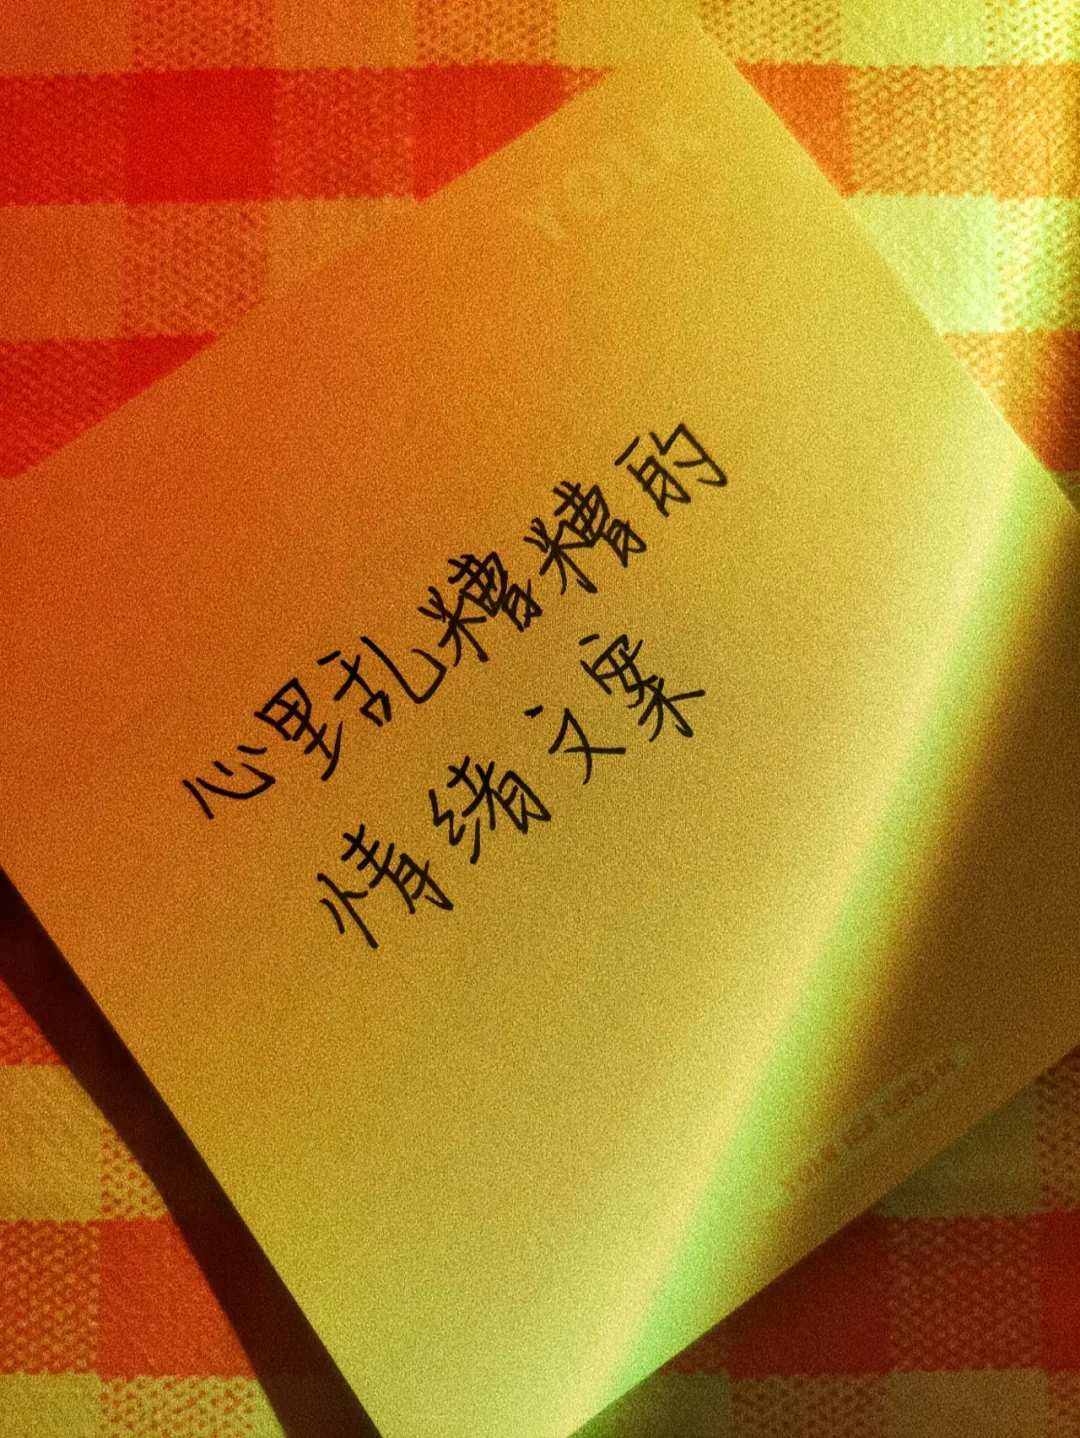 心里乱糟糟的
情绪文案